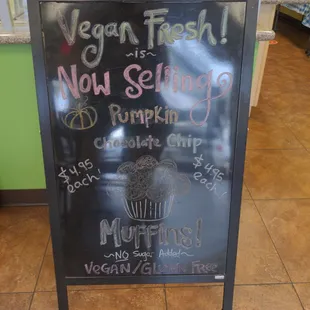 Vegan Fresh!
~ is ~
Now Selling
Pumpkin
Chocolate Chip
$4.95 each!
$4.95 each!
Muffins!
~ NO Sugar Added! ~
VEGAN/GLUTEN FREE